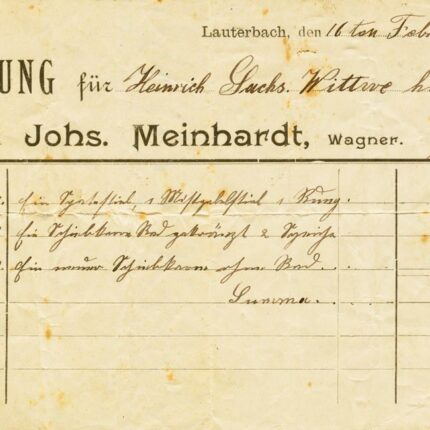 Lauterbach, den 16ten Febr
UNG für Heinrich Sachs. Wittwe h
Johs. Meinhardt, Wagner.
Ein Spatestiel, 1 Mistgabelstiel 1 Rung.
Ein Schiebkarrn Rad gekränzt 2 Speiche
Ein neuer Schiebkarrn ohne Rad.
Summa.